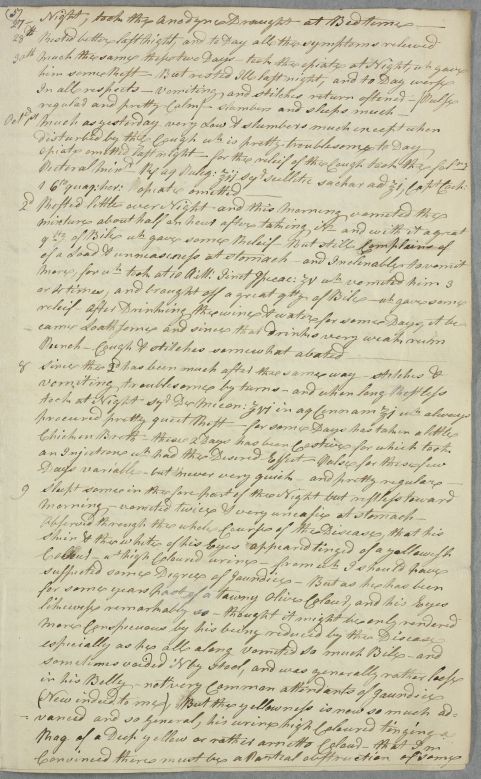 27 Night, took the Anodyne Draught at Bedtime
28th Rested better last Night, and to Day all the symptoms relieved
30th Much the same these two Days - took the opiate at Night wh gave
him some Rest - But rested ill last night, and to Day worse
In all respects - vomiting and stitches return oftener - Pulse
regular and pretty Calm - slumbers and sleeps much
Octr 1st Much as yesterday very Low & slumbers much except when
disturbed by the Cough wh is pretty troublesome to Day
opiate omitted last Night - for the relief of the Cough took the folg
Pectoral
opiate omitted
2 Rested little over Night - and this Morning vomited the
mixture about half an hour after taking it and with it a great
qty of Bile wh gave some Relief. But still Complains of
of a load & uneasiness at stomach - and Inclinable to vomit
more, for wh took at 10 AM. Vin Ipecac wh vomited him 3
or 4 times, and brought off a great qty of Bile - wh gave some
relief - after Drinking the wine & water for some Days, it be-
came Loathsome and since that drinks very weak rum
Punch - Cough & stitches somewhat abated
8 Since the 2d has been much after the same way - stitches &
vomiting troublesome by turns - and when long Restless
took at Night in aq Cinnam wh always
procured pretty quiet Rest - for some Days has taken a little
Chicken Broth - these 2 Days has been Costive for which took
an Injection wh had the Desired Effect - Pulse for these few
Days variable - but never very quick - and pretty regular
9 Slept some in the fore part of the Night but restless toward
Morning - vomited twice & very uneasie at stomach -
observed through the whole Course of the Disease, that his
Skin & the white of his Eyes appeard tinged of a yellowish
Colour - wh high Coloured urine - from wh I should have
suspected some Degree of Jaundice - But as he has been
for some years past of a tawny Olive Colour, and his Eyes
likewise remarkably so - thought it might be only rendered
more Conspicuous by his being reduced by the Disease
especially as he all along vomited so much Bile - and
sometimes voided it by stool, and was generally rather loose
in his Belly - not very Common attendants of Jaundice
(New indeed to me) But the yellowness is now so much ad-
vanced and so general, his urine high Coloured tinging a
Rag of a Deep yellow or rather arnetto Colour - that I'm
Convinced there must be a Partial obstruction of some